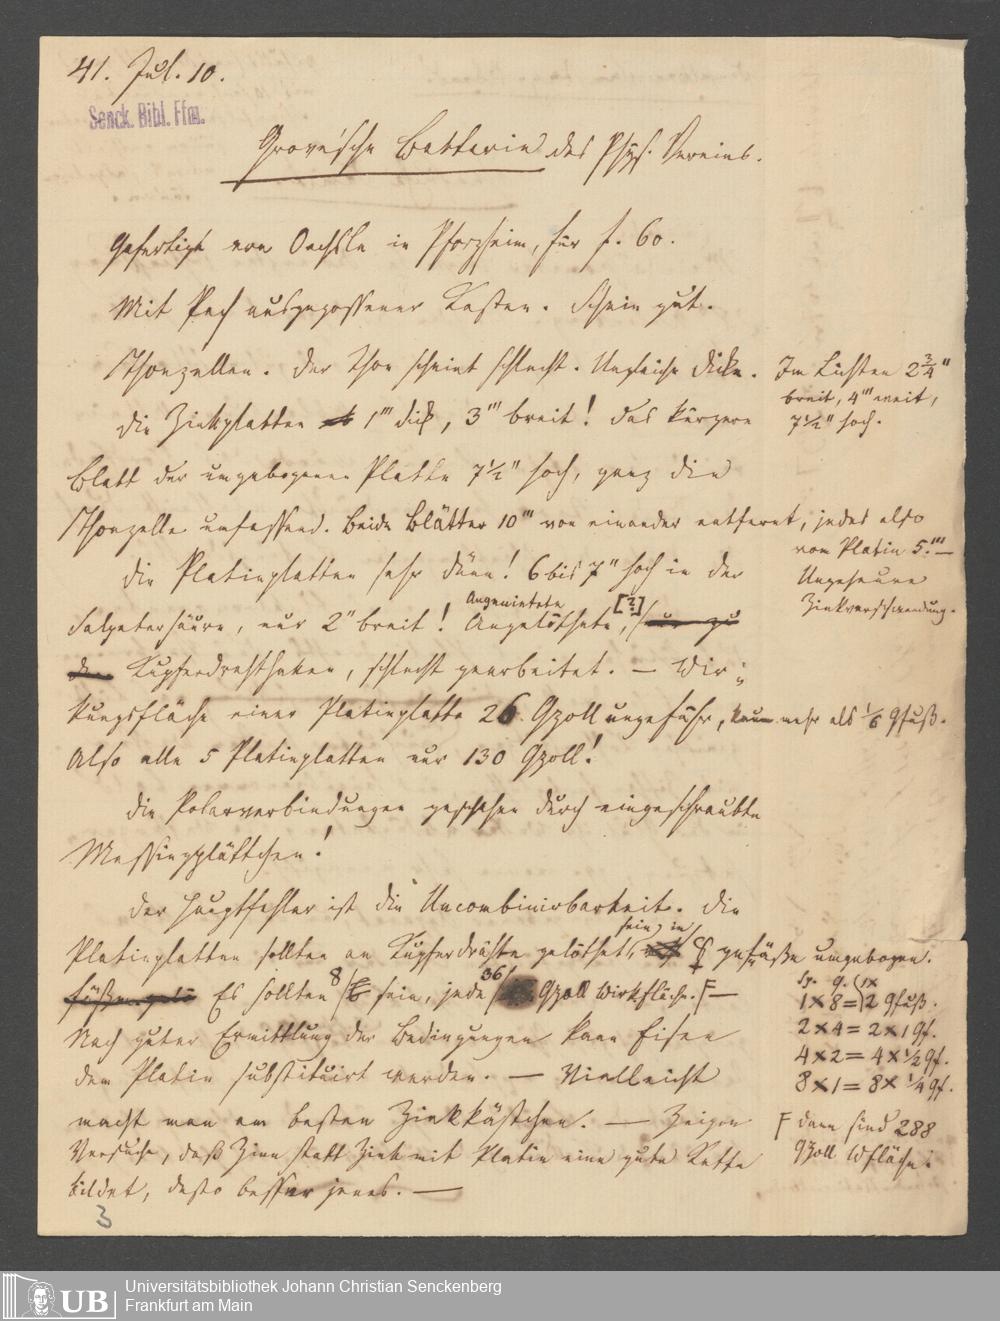 41. Jul. 10.
Senck. Bibl. Ffm.
Grove'sche Batterie des Phys. Vereins.
Gefertigt von Oechsle in Pforzheim, für f. 60.
Mit Pech ausgegossener Kasten. Schein gut.
Thonzellen. Der Thon scheint schlecht. Ungleiche Dicke.
Im Lichten 2 3/4"
breit, 4''' weit,
7 1/2" hoch.
Die Zinkplatten 1''' dick, 3''' breit! Das kürzere
Blatt der umgebogenen Platte 7 1/2" hoch, ganz die
Thonzelle umfassend. Beide Blätter 10''' von einander entfernt, jedes also
vom Platin 5.''' —
Ungeheure
Zinkverschwendung.
Die Platinplatten sehr dünn! 6 bis 7" hoch in der
Angenietete [?]
Salpetersäure, nur 2" breit! Angelöthete,
Kupferdrahthaken, schlecht gearbeitet. — Wir-
kungsfläche einer Platinplatte 26 Qzoll ungefähr, kaum mehr als 1/6 Qfuß.
Also alle 5 Platinplatten nur 130 Qzoll!
Die Polarverbindungen geschehen durch eingeschraubte
Messingplättchen!
Der Hauptfehler ist die Uncombinirbarkeit. Die
sein, in
Platinplatten sollten an Kupferdrähte gelöthet, gefäße umgebogen.
Es sollten 8 sein, jede 36 Qzoll Wirkfläche. F —
1 x 8 = 2 Qfuß.
2 x 4 = 2 x 1 Qf.
4 x 2 = 4 x 1/2 Qf.
8 x 1 = 8 x 1/4 Qf.
Nach guter Ermittlung der Bedingungen kann Eisen
dem Platin substituirt werden. — Vielleicht
macht man am besten Zinkkästchen. — Zeigen
F dann sind 288
Qzoll Wfläche.
Versuche, daß Zinn statt Zink mit Platin eine gute Kette
bildet, desto besser jenes. —
3
UB
Universitätsbibliothek Johann Christian Senckenberg
Frankfurt am Main